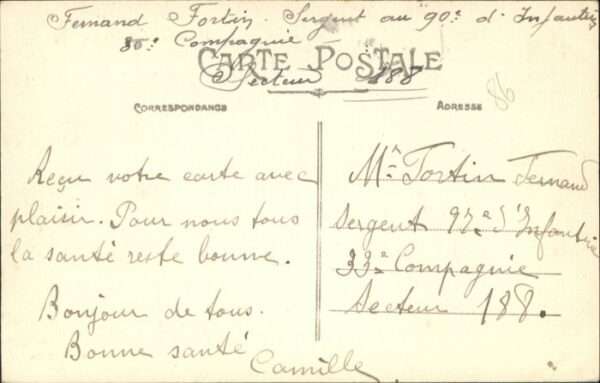 Fernand Fortin. Sergent au 90e d'Infanterie
Compagnie
CARTE POSTALE
Secteur 188
CORRESPONDANCE
ADRESSE
86
Reçu votre carte avec
plaisir. Pour nous tous
la santé reste bonne.
Bonjour de tous.
Bonne santé
Camille
Mr Fortin Fernand
Sergent 97e d'Infanterie
33e Compagnie
Secteur 188.